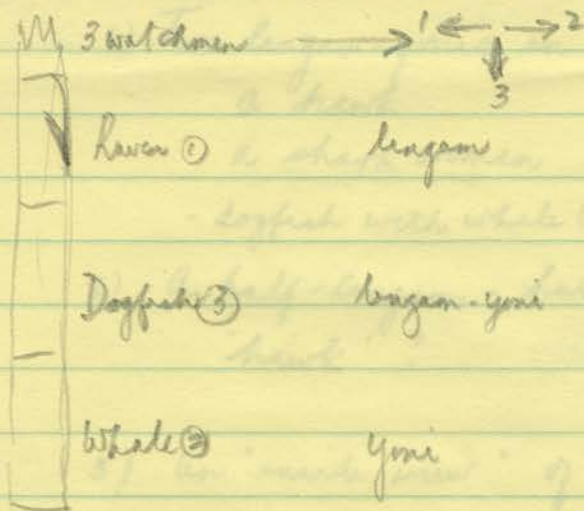 3 watchmen → 1 ← → 2
↓
3
Raven ① lingam
Dogfish ③ lingam-yoni
Whale ② yoni